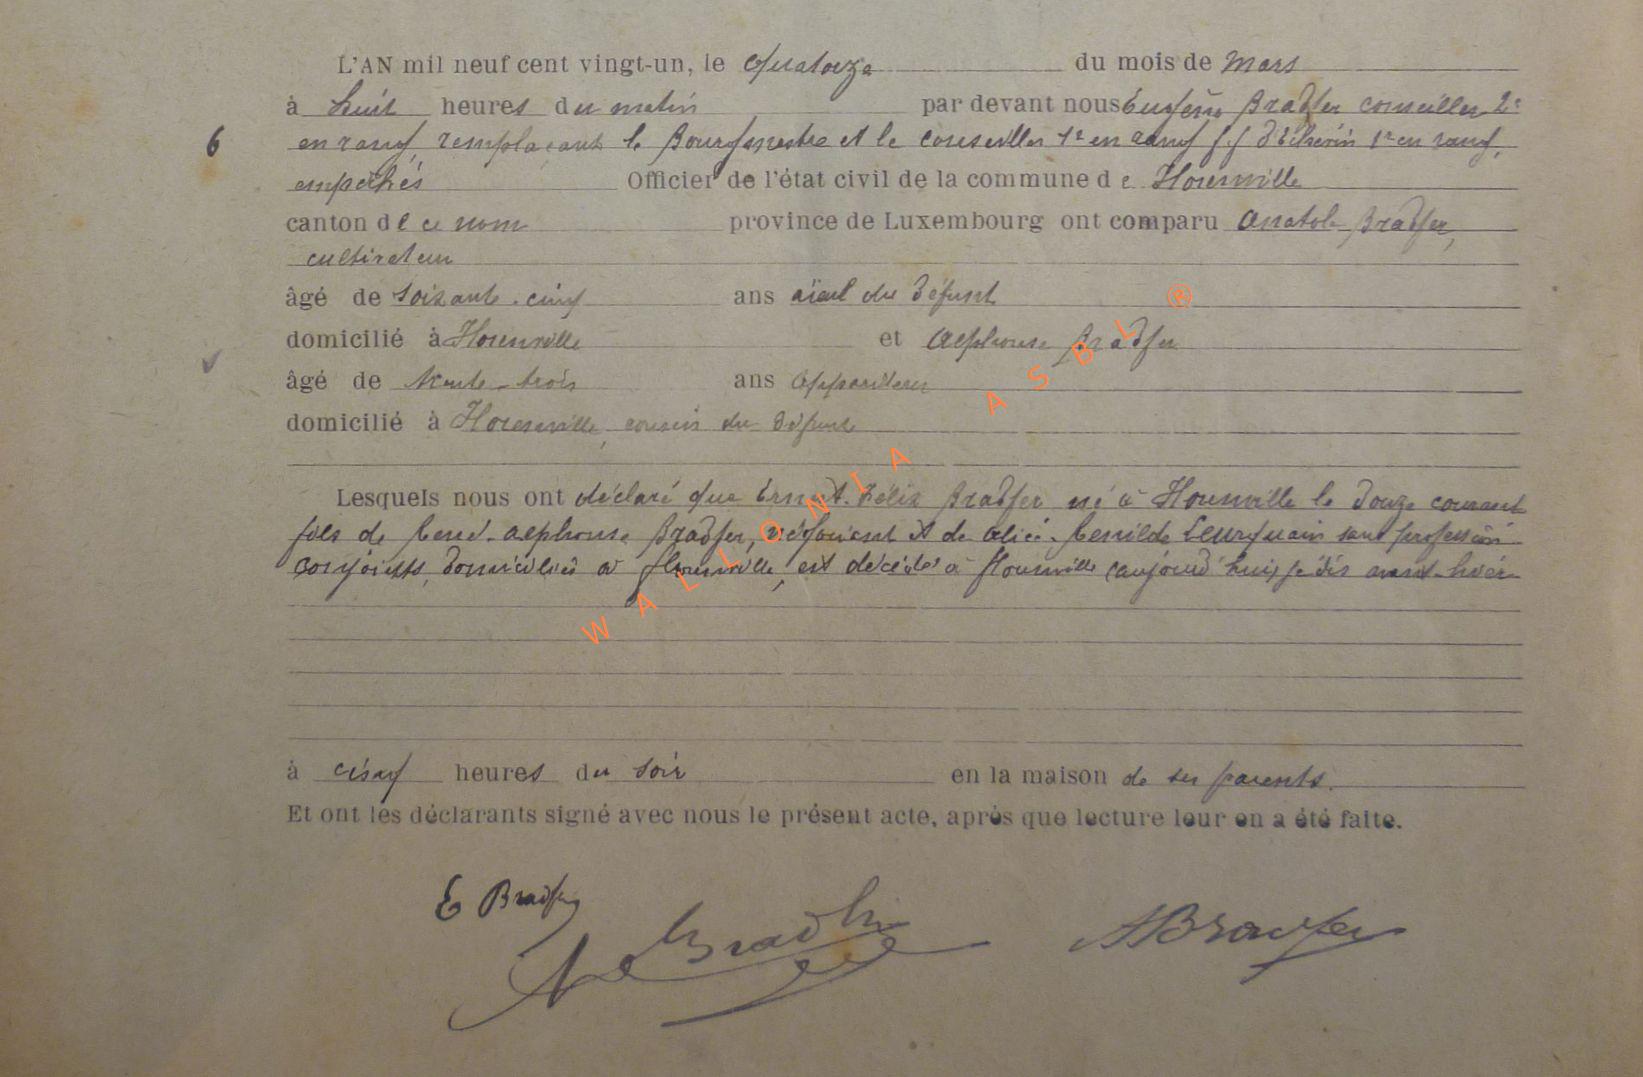 L'AN mil neuf cent vingt-un, le quatorze du mois de Mars
à huit heures du matin par devant nous Eugène Bradfer conseiller 2e
6 en rang remplaçant le Bourgmestre et le conseiller 1r en rang f.f d'Echevin 1r en rang,
empêchés Officier de l'état civil de la commune de Florenville
canton de ce nom province de Luxembourg ont comparu Anatole Bradfer,
cultivateur
âgé de soixante-cinq ans aïeul du défunt
domicilié à Florenville et Alphonse Bradfer
âgé de trente-trois ans appariteur
domicilié à Florenville, cousin du défunt
Lesquels nous ont déclaré que Ernest-Félix Bradfer né à Florenville le douze courant
fils de René-Alphonse Bradfer, négociant et de Alice-Renilde Leurquain sans profession
conjoints, domiciliés à Florenville, est décédé à Florenville (aujourd'hui, je dis avant-hier
à cinq heures du soir en la maison de ses parents.
Et ont les déclarants signé avec nous le présent acte, après que lecture leur en a été faite.
E Bradfer
A Bradfer
A Bradfer
WALLONIA ASBL ®